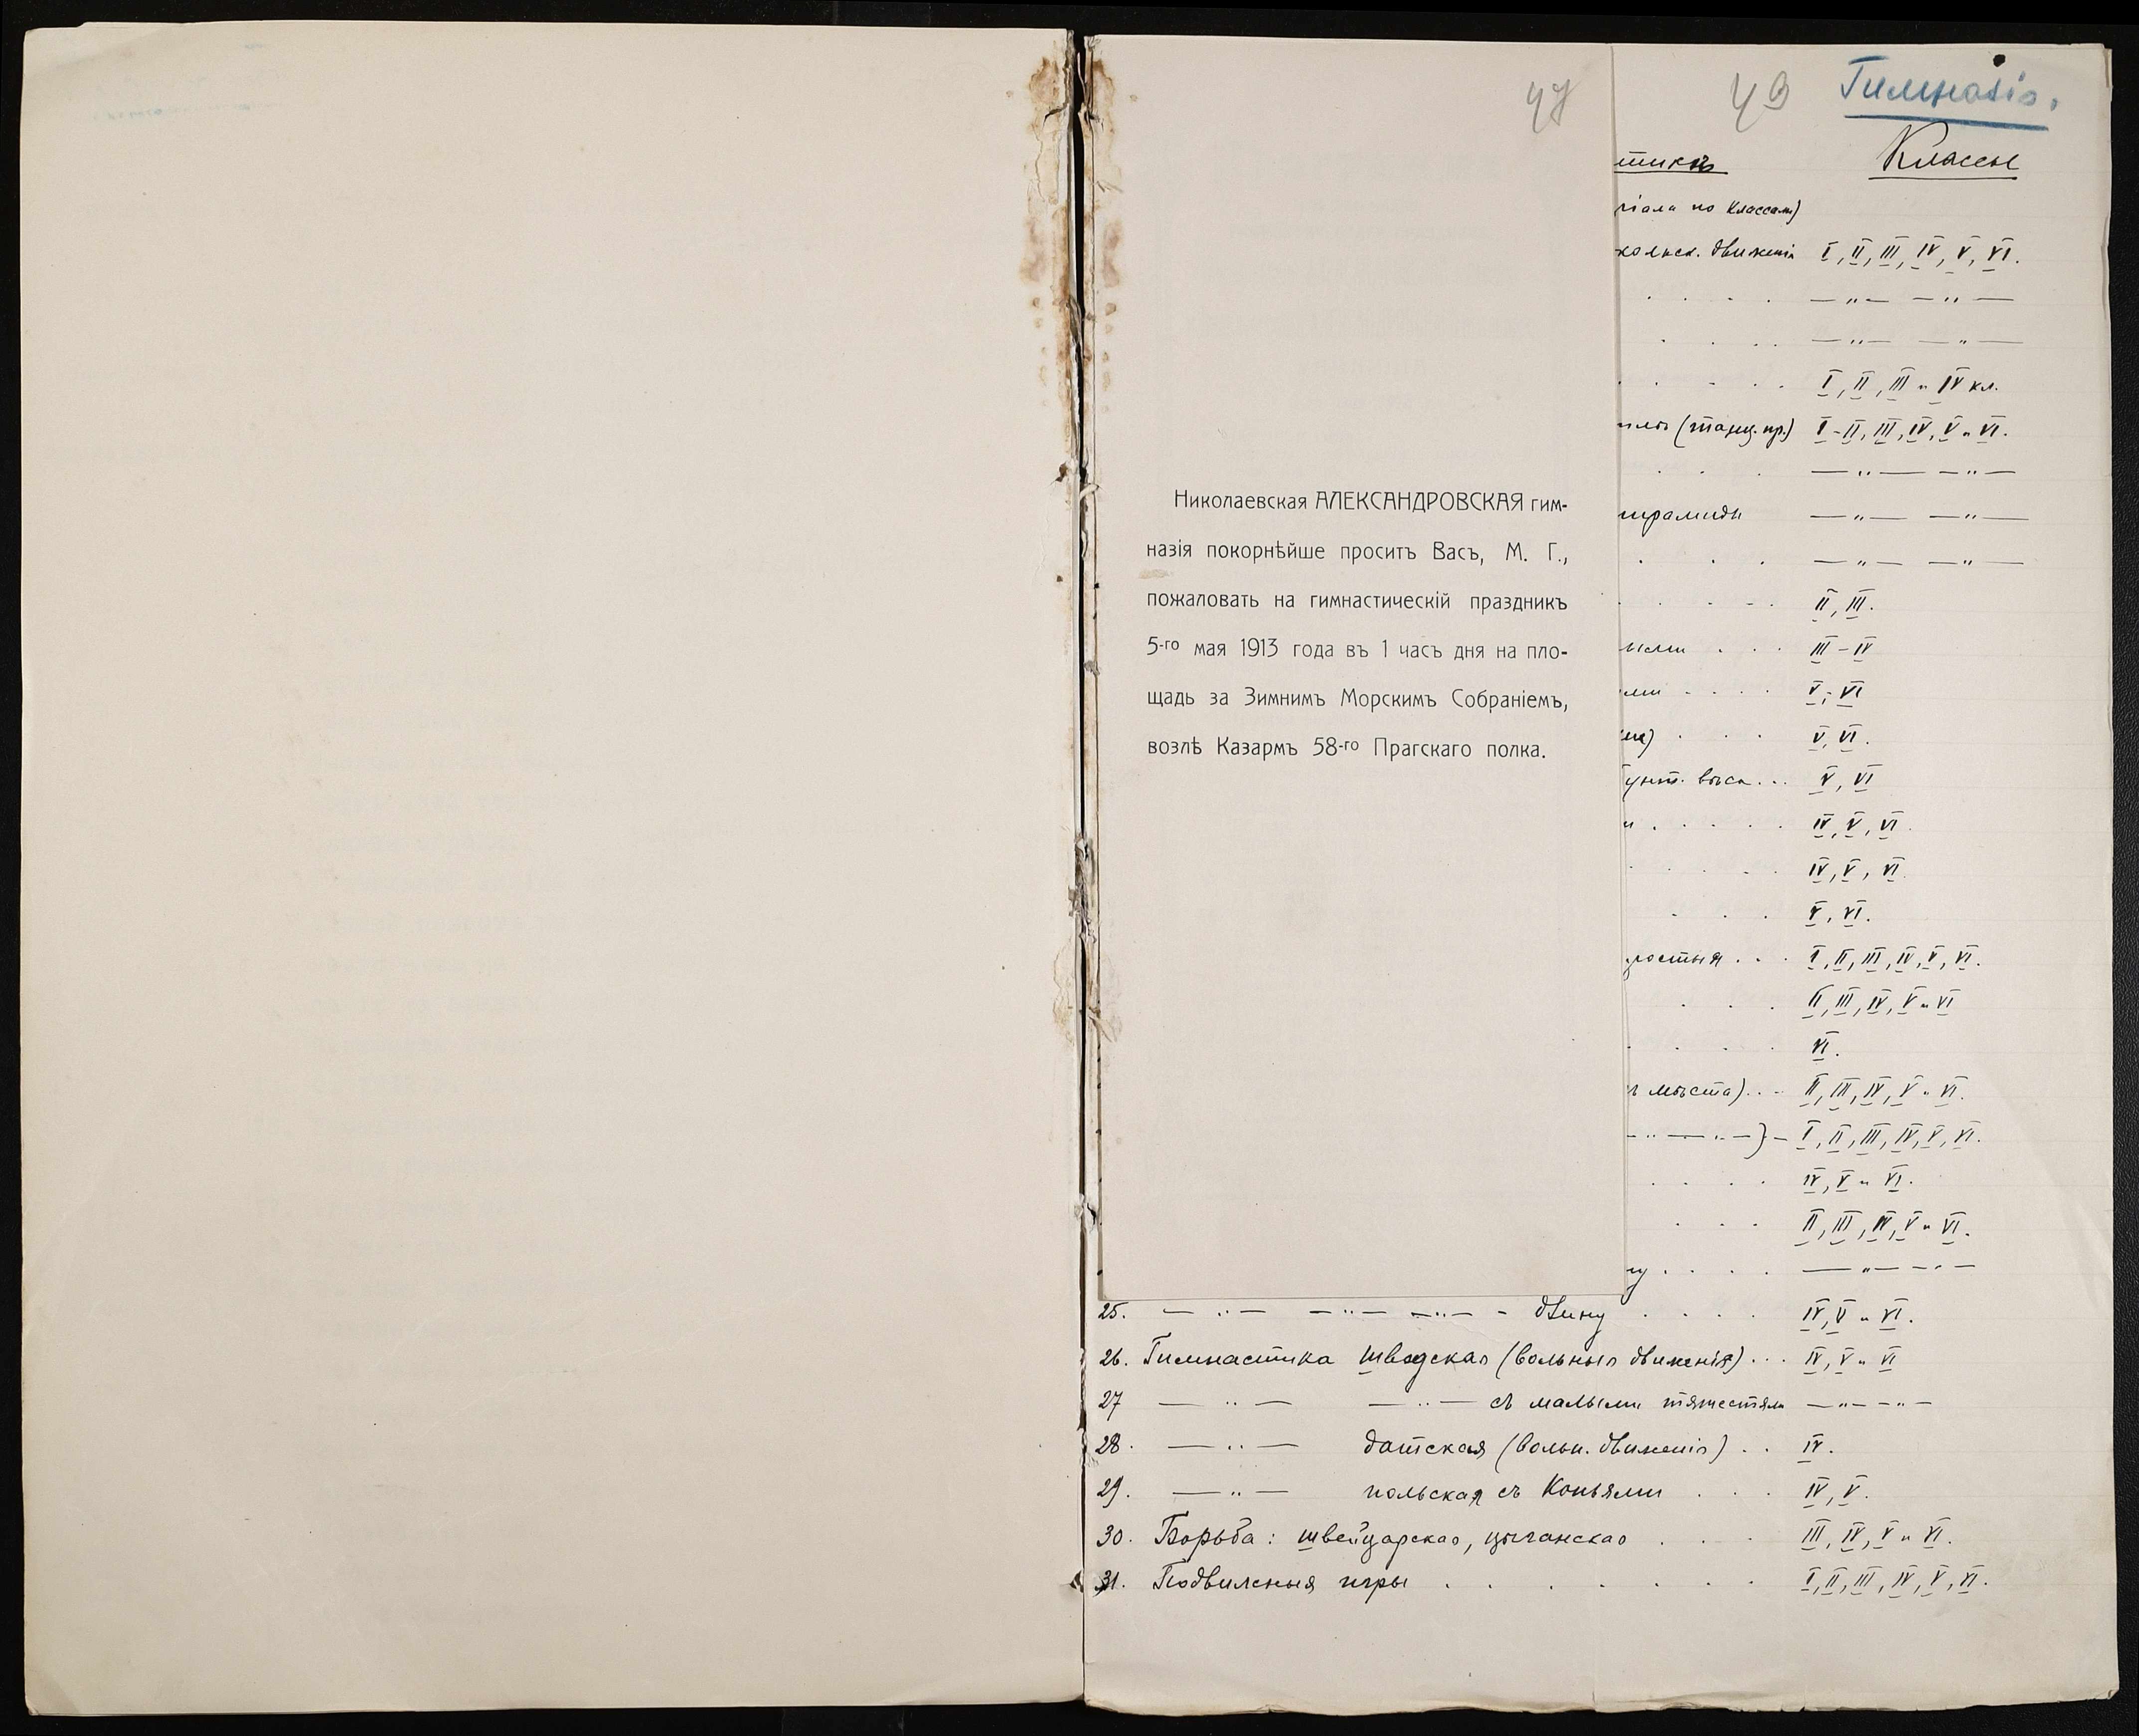 47
Николаевская АЛЕКСАНДРОВСКАЯ гим-
назія покорнѣйше проситъ Васъ, М. Г.,
пожаловать на гимнастическій праздникъ
5-го мая 1913 года въ 1 часъ дня на пло-
щадь за Зимнимъ Морскимъ Собраніемъ,
возлѣ Казармъ 58-го Прагскаго полка.
49 Гимназія.
Классы
ріала по классамъ)
кольск. движенія I, II, III, IV, V, VI.
— „ — — „ —
— „ — — „ —
I, II, III и IV кл.
(танц. пр.) I - II, III, IV, V и VI.
— „ — — „ —
ирамиды — „ — — „ —
— „ — — „ —
II, III.
III - IV
V, VI
V, VI.
V, VI
IV, V, VI.
IV, V, VI.
V, VI.
ростыя . . . I, II, III, IV, V, VI.
II, III, IV, V и VI
VI.
мѣста) . . - II, III, IV, V и VI.
- „ — „ —) - I, II, III, IV, V, VI.
IV, V и VI.
II, III, IV, V и VI.
ну . . . . — „ — - „ -
25. — „ — — „ — — „ — - длину . . . . IV, V и VI.
26. Гимнастика шведская (вольныя движенія) . . . IV, V и VI
27 — „ — — „ — съ малыми тяжестями — „ — - „ -
28. — „ — датская (вольн. движенія) . . IV.
29. — „ — польская съ Копьями . . . IV, V.
30. Борьба: швейцарская, цыганская . . . III, IV, V и VI.
31. Подвижныя игры . . . . . . . I, II, III, IV, V, VI.